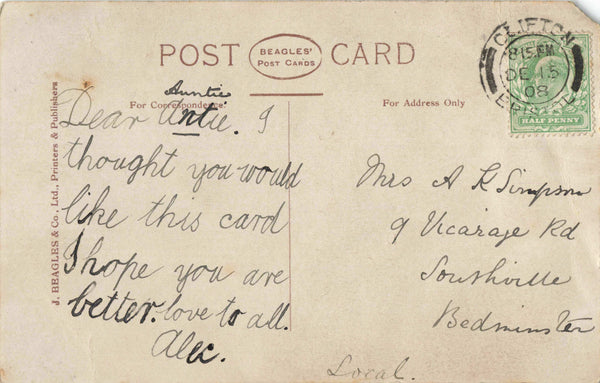 POST CARD
BEAGLES'
POST CARDS
CLIFTON
8.15 PM
DE 15
08
BRISTOL
HALF PENNY
For Correspondence.
For Address Only
J. BEAGLES & Co., Ltd., Printers & Publishers
Auntie
Dear Antie. I
thought you would
like this card
I hope you are
better. love to all.
Alec.
Mrs A K Simpson
9 Vicarage Rd
Southville
Bedminster
Local.